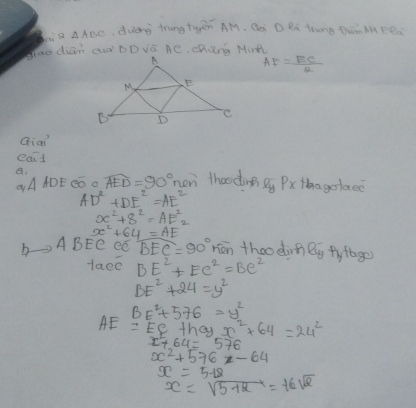 △ ABC, đường trung tuyến AM. Gọi D là trung điểm AM E là
giao điểm của BD và AC. chứng Minh
AE = EC/2
A
M E
B D C
Giải
Câu 1
a.
a, △ ADE có AED = 90° nên theo định lý
AD² + DE² = AE²
x² + 8² = AE²
x² + 64 = AE
b → △ BEC có BEC = 90° nên theo định lý Pythago
ta có BE² + EC² = BC²
BE² + 24 = y²
BE² + 576 = y²
AE = EC thay x² + 64 = 24²
x² + 64 = 576
x² + 576 - 64
x = 512
x = √512 = 16√2